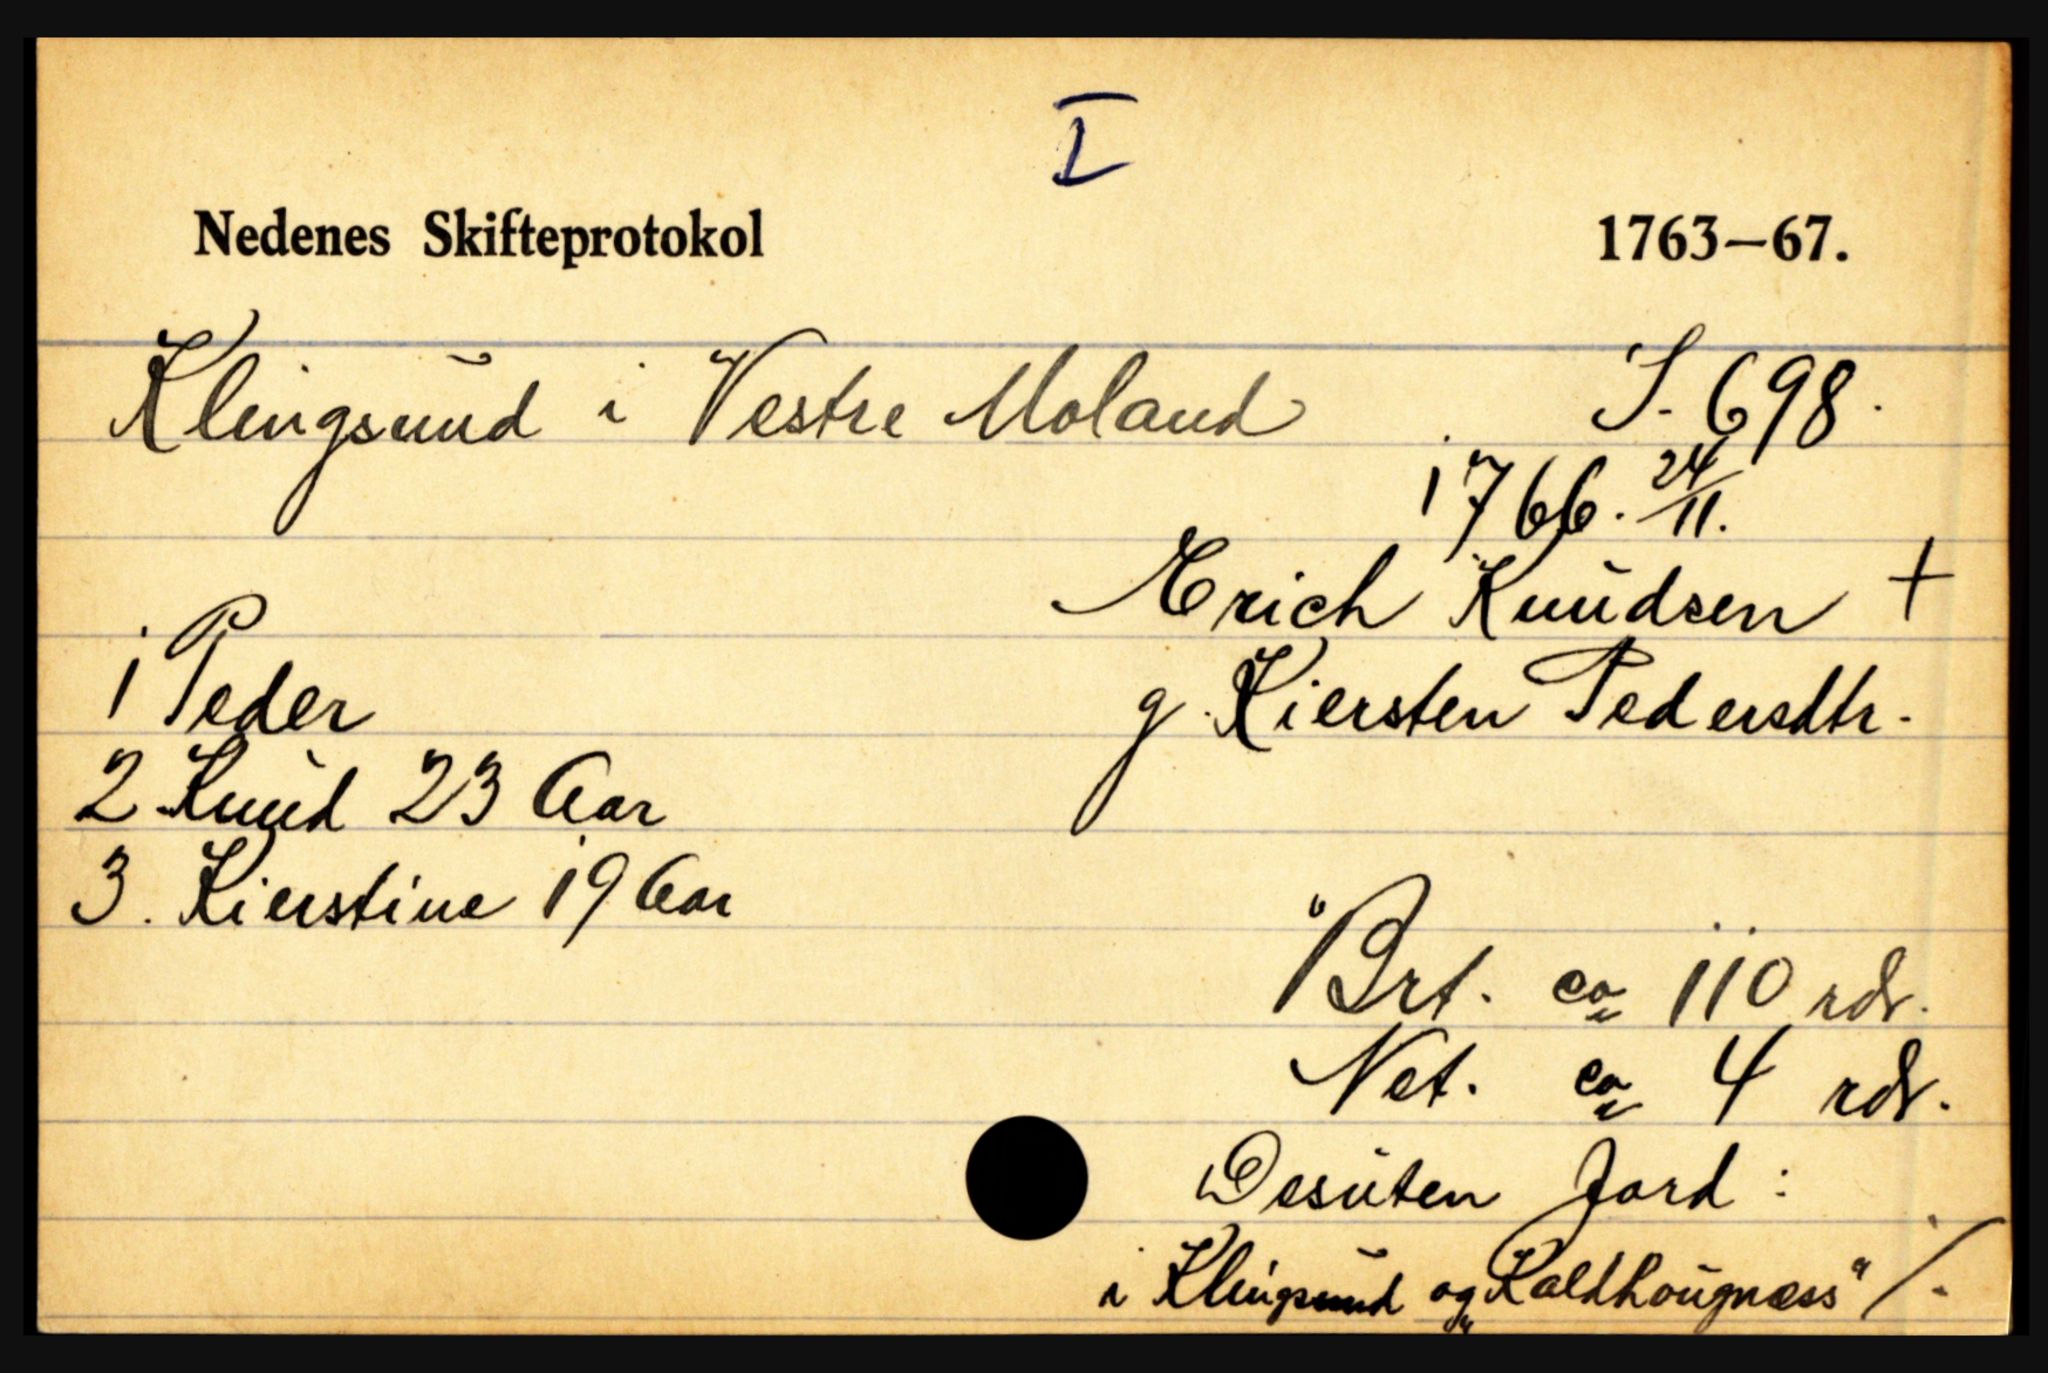 I
Nedenes Skifteprotokol 1763—67.
Klingsund i Vestre Moland S. 698.
1766. 24/11.
Erich Knudsen +
g. Kiersten Pedersdtr.
1 Peder
2 Knud 23 Aar
3. Kierstine 19 Aar
Brt. ca 110 rdr.
Net. ca 4 rdr.
Desuten Jord :
i Klingsund og „Kaldhougnæss“ /.